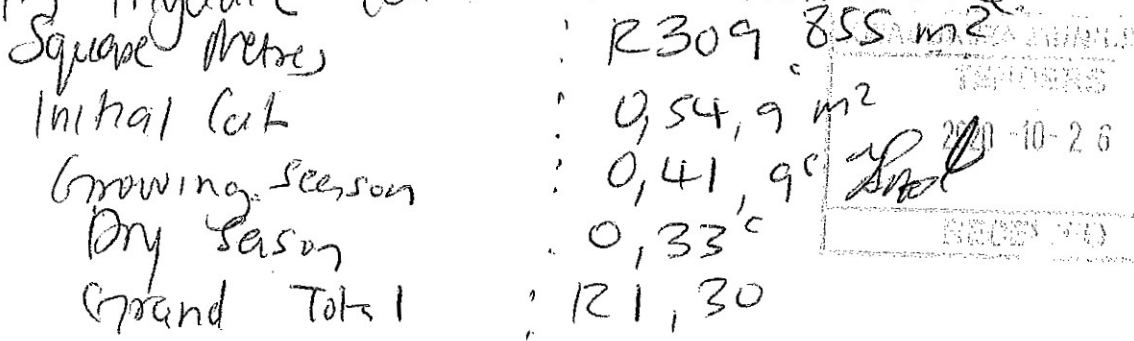 Square Metres : R309 855 m2
Initial Cut : 0,54,9 m2
Growing Season : 0,41,9c
Dry Season : 0,33c
Grand Total : R1,30
TENDERS
2020-10-26
RECEIVED